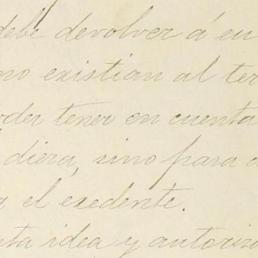 debe devolver á en
no existian al ter
der tener en cuenta
diera, sino para
el exedente.
ta idea y autoriz